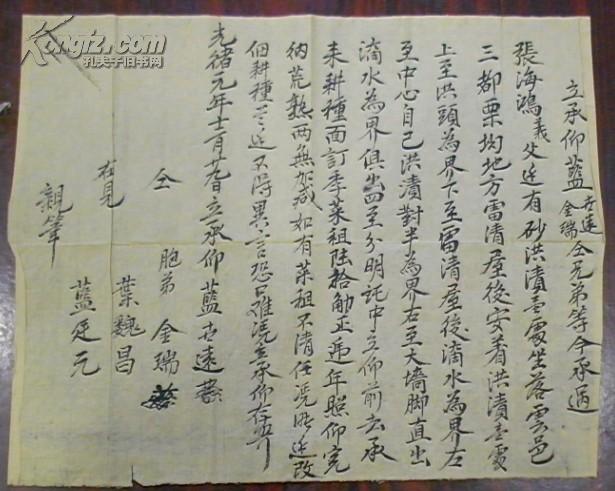 立承仰藍古遠金瑞仝兄弟等今承過
張海鴻義父近有砂洪漬壹處坐落雲邑
三都栗均地方雷清屋後安着洪漬壹處
上至洪頭為界下至雷清屋後滴水為界左
至中心自己洪漬對半為界右至大墻脚直出
滴水為界俱出四至分明託中立仰前去承
來耕種面訂季菜租陸拾觔正遞年照仰完
納荒熟兩無加減如有菜租不清任憑 改
佃耕種 不得異言恐口難憑立承仰存
光緒元年十一月 日立承仰藍古遠
仝胞弟 金瑞
在見 葉魏昌
藍廷元
親筆
Kongfz.com
孔夫子旧书网